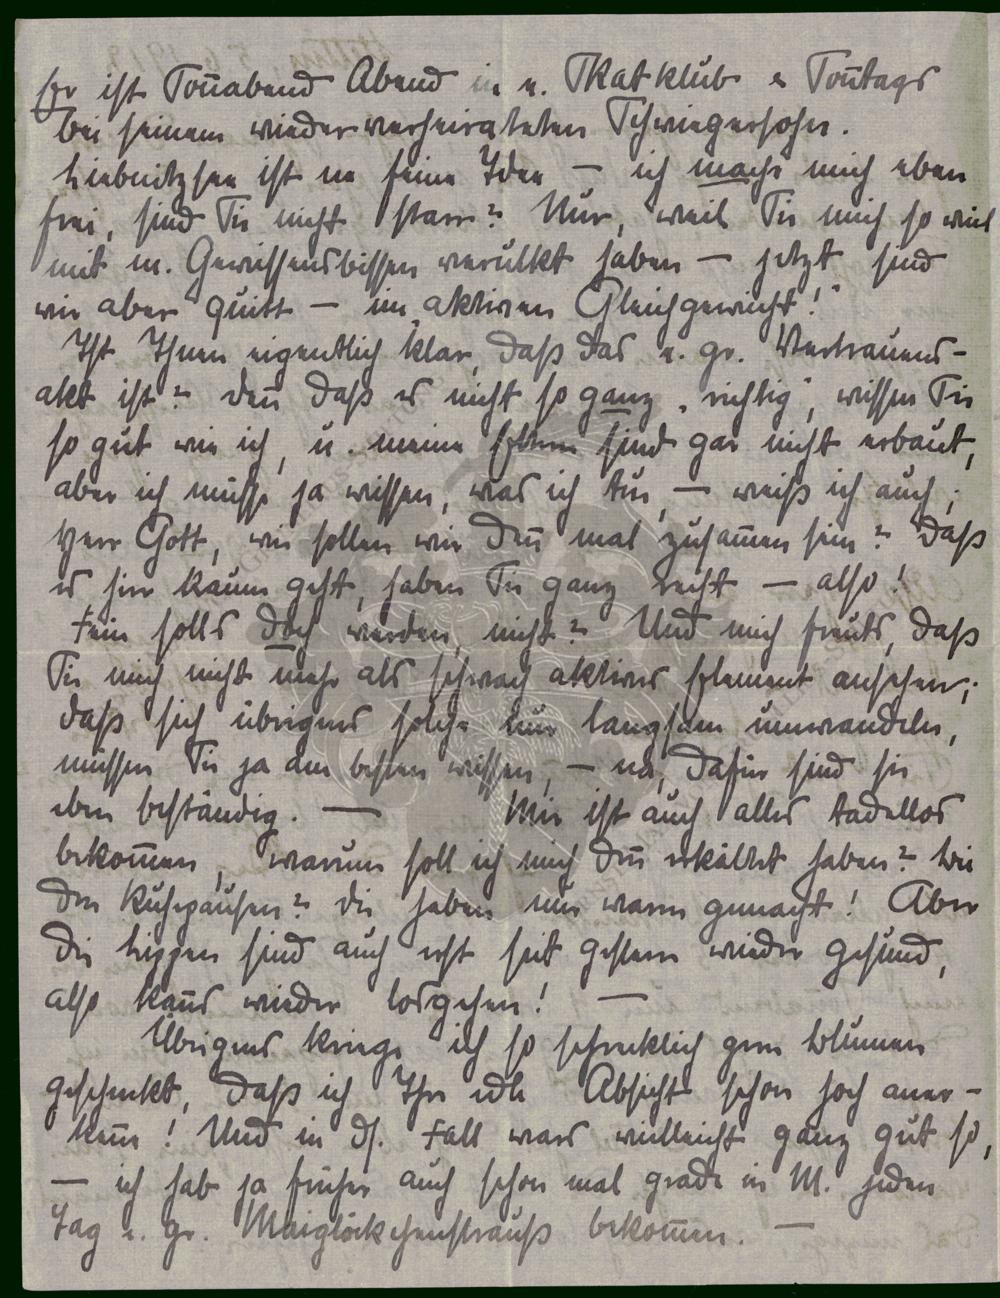 Er ist Soñabend Abend in e. Skatklub & Soñtags
bei seinem wiederverheirateten Schwiegersohn.
Liebnitzsee ist ne feine Idee — ich mache mich eben
frei, sind Sie nicht starr? Nur, weil Sie mich so viel
mit m. Gewissensbissen verulkt haben — jetzt sind
wir aber quitt — im „aktiven Gleichgewicht!"
Ist Ihnen eigentlich klar, daß das e. gr. Vertrauens-
akt ist? Deñ daß es nicht so ganz „richtig", wissen Sie
so gut wie ich, u. meine Eltern sind gar nicht erbaut,
aber ich müsse ja wissen, was ich tue, — weiß ich auch;
Herr Gott, wie sollen wir deñ mal zusam̄en sein? Daß
es hier kaum geht, haben Sie ganz recht — also!
Fein solls doch werden, nicht? Und mich freuts, daß
Sie mich nicht mehr als schwach aktives Element ansehen;
daß sich übrigens solche nur langsam umwandeln,
müssen Sie ja am besten wissen, — na, dafür sind sie
eben beständig. — Mir ist auch alles tadellos
bekom̄en, warum soll ich mich deñ erkältet haben? Bei
den Ruhepausen? Die haben nur warm gemacht! Aber
die Lippen sind auch erst seit gestern wieder gesund,
also kañs wieder losgehen! —
Übrigens kriege ich so schrecklich gern Blumen
geschenkt, daß ich Ihre edle Absicht schon hoch aner-
keñe! Und in ds. Fall wars vielleicht ganz gut so,
— ich hab ja früher auch schon mal grade in M. jeden
Tag e. gr. Maiglöckchenstrauß bekom̄en. —